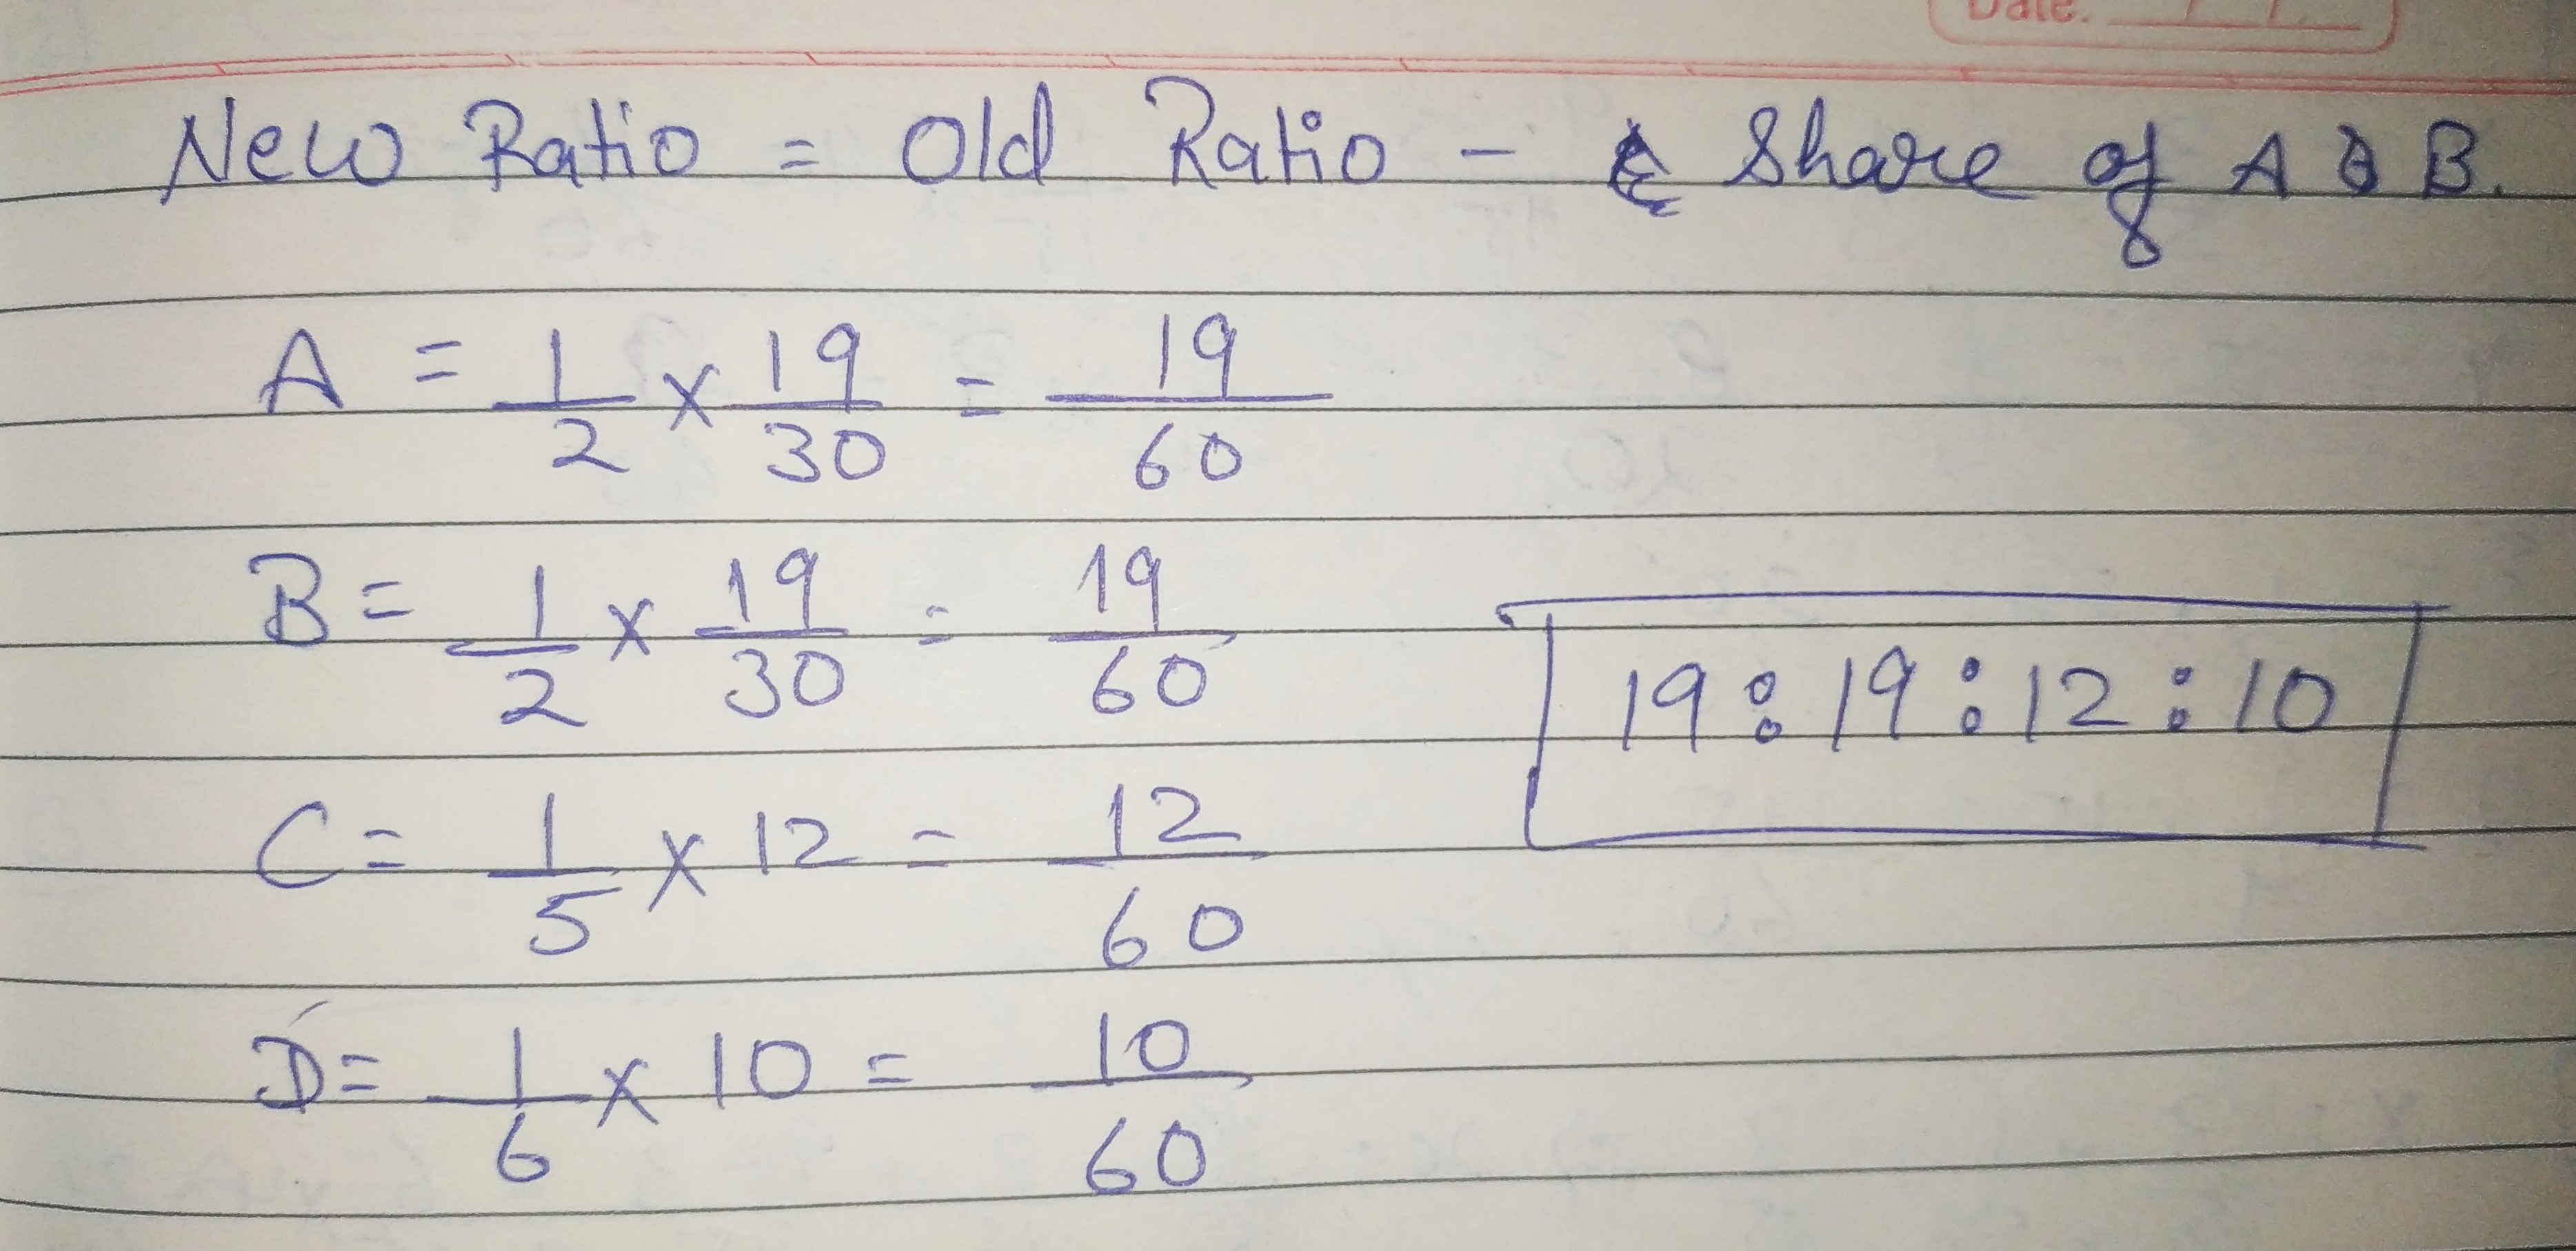 Date.
New Ratio = Old Ratio - Share of A & B.
A = 1/2 × 19/30 = 19/60
B = 1/2 × 19/30 = 19/60
19 : 19 : 12 : 10
C = 1/5 × 12 = 12/60
D = 1/6 × 10 = 10/60